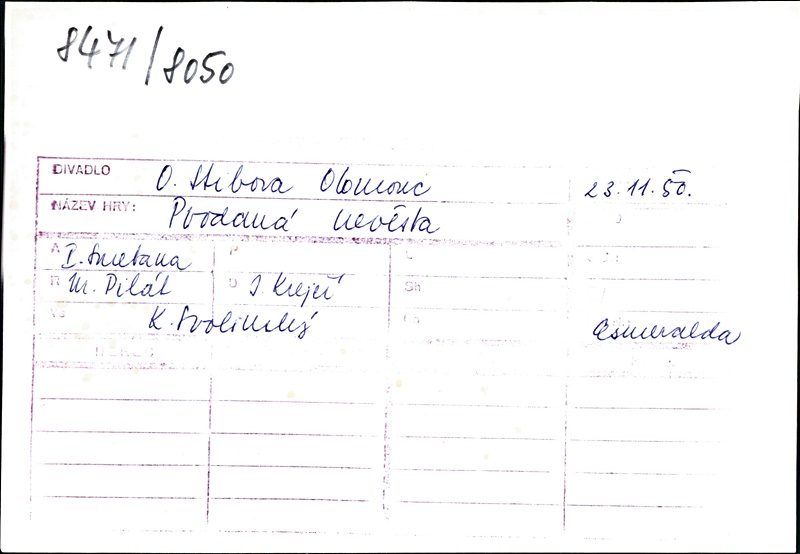 8471/8050
DIVADLO O. Stibora Olomouc 23.11.50.
NÁZEV HRY: Prodaná nevěsta
A B. Smetana P
R M. Pilát D I. Krejčí Sh
K. Svolinský Esmeralda